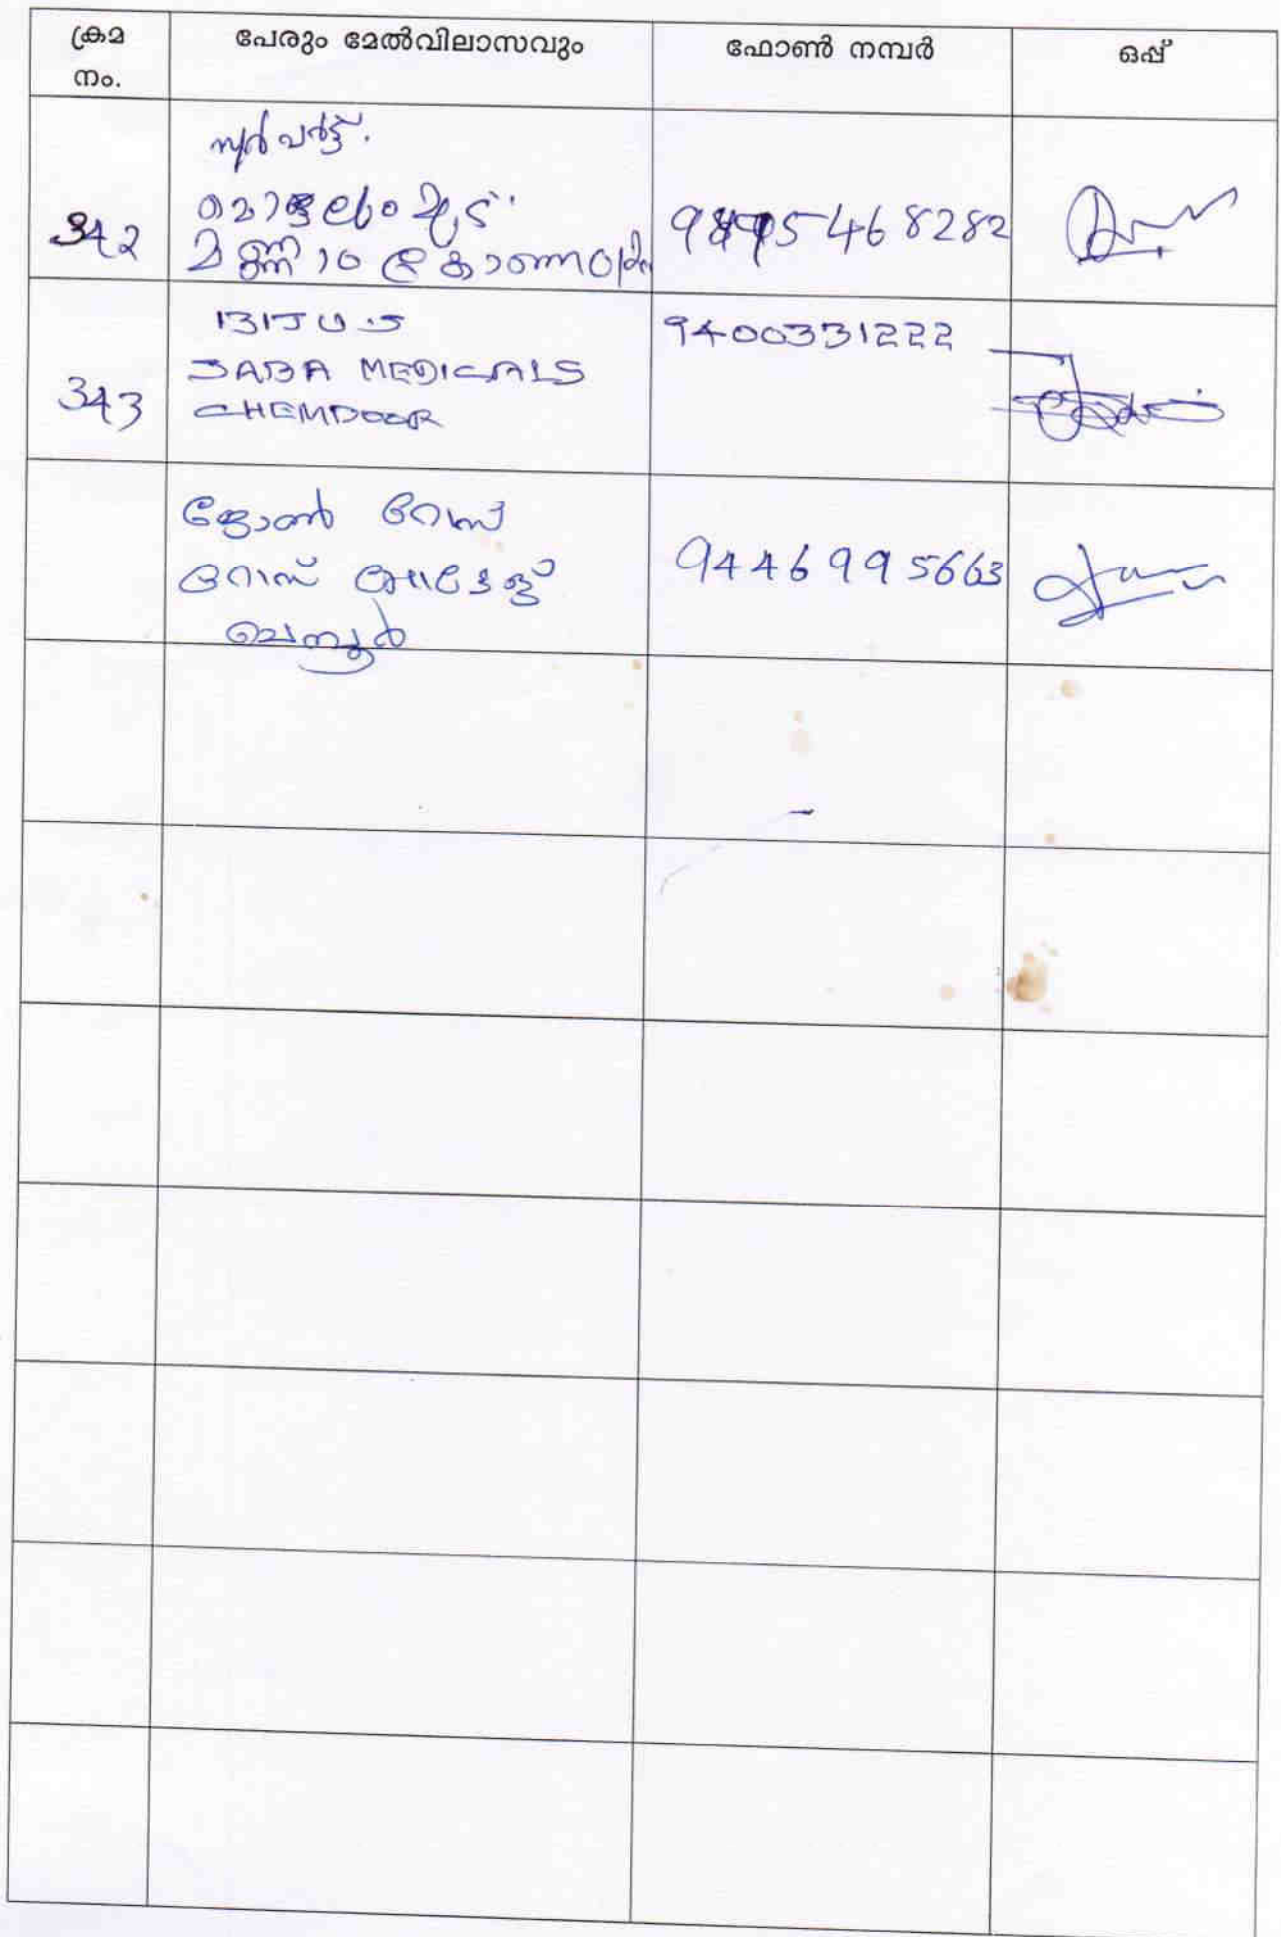 ക്രമ നം.
പേരും മേൽവിലാസവും
ഫോൺ നമ്പർ
ഒപ്പ്
342
മണ്ണാം കോണം
343
BIJU S
SABA MEDICALS
CHEMPOOR
9400331222
ജോൺ റോസ്
റോസ് കോട്ടേജ്
ചെമ്പൂർ
9446995663